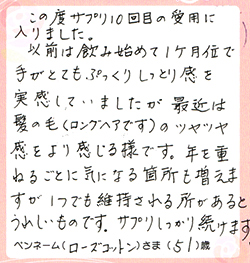 この度サプリ10回目の愛用に
入りました。
以前は飲み始めて1ケ月位で
手がとてもぷっくりしっとり感を
実感していましたが最近は
髪の毛(ロングヘアです)のツヤツヤ
感をより感じる様です。年を重
ねるごとに気になる箇所も増えま
すが1つでも維持される所があると
うれしいものです。サプリしっかり続けます
ペンネーム(ローズコットン)さま(51)歳